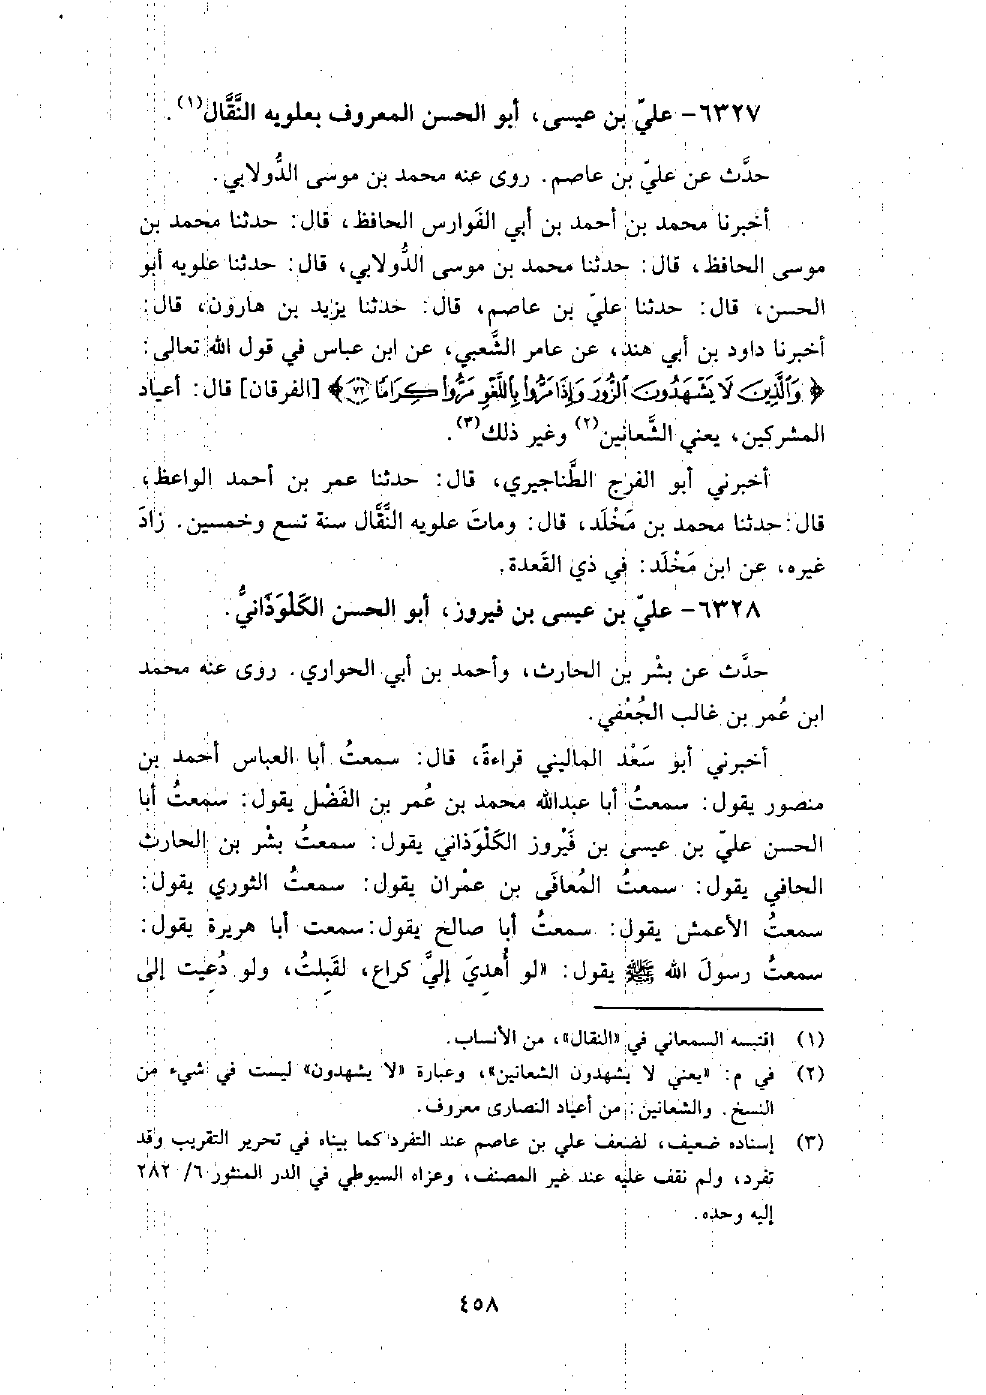 ٦٣٢٧- عليّ بن عيسى، أبو الحسن المعروف بعلويه النَّقَّال(١).
حدَّث عن عليّ بن عاصم. روى عنه محمد بن موسى الدُّولابي.
أخبرنا محمد بن أحمد بن أبي الفَوارس الحافظ، قال: حدثنا محمد بن
موسى الحافظ، قال: حدثنا محمد بن موسى الدُّولابي، قال: حدثنا علويه أبو
الحسن، قال: حدثنا عليّ بن عاصم، قال: حدثنا يزيد بن هارون، قال:
أخبرنا داود بن أبي هند، عن عامر الشَّعبي، عن ابن عباس في قول الله تعالى:
﴿وَٱلَّذِينَ لَا يَشْهَدُونَ ٱلزُّورَ وَإِذَا مَرُّوا۟ بِٱللَّغْوِ مَرُّوا۟ كِرَامًا ٧٢﴾ [الفرقان] قال: أعياد
المشركين، يعني الشَّعانين(٢) وغير ذلك(٣).
أخبرني أبو الفرج الطَّناجيري، قال: حدثنا عمر بن أحمد الواعظ،
قال: حدثنا محمد بن مَخْلَد، قال: وماتَ علويه النَّقَّال سنة تسع وخمسين. زادَ
غيره، عن ابن مَخْلَد: في ذي القَعدة.
٦٣٢٨- عليّ بن عيسى بن فيروز، أبو الحسن الكَلْوَذَانيُّ.
حدَّث عن بشْر بن الحارث، وأحمد بن أبي الحواري. روى عنه محمد
ابن عُمر بن غالب الجُعْفي.
أخبرني أبو سَعْد الماليني قراءةً، قال: سمعتُ أبا العباس أحمد بن
منصور يقول: سمعتُ أبا عبدالله محمد بن عُمر بن الفَضْل يقول: سمعتُ أبا
الحسن عليّ بن عيسى بن فَيْروز الكَلْوَذاني يقول: سمعتُ بشْر بن الحارث
الحافي يقول: سمعتُ المُعافَى بن عمْران يقول: سمعتُ الثوري يقول:
سمعتُ الأعمش يقول: سمعتُ أبا صالح يقول: سمعت أبا هريرة يقول:
سمعتُ رسولَ الله ﷺ يقول: «لو أُهدِيَ إليَّ كراع، لقَبِلتُ، ولو دُعِيت إلى
(١) اقتبسه السمعاني في «النقال»، من الأنساب.
(٢) في م: «يعني لا يشهدون الشعانين»، وعبارة «لا يشهدون» ليست في شيء من
النسخ. والشعانين: من أعياد النصارى معروف.
(٣) إسناده ضعيف، لضعف علي بن عاصم عند التفرد كما بيناه في تحرير التقريب وقد
تفرد، ولم نقف عليه عند غير المصنف، وعزاه السيوطي في الدر المنثور ٦/ ٢٨٢
إليه وحده.
٤٥٨